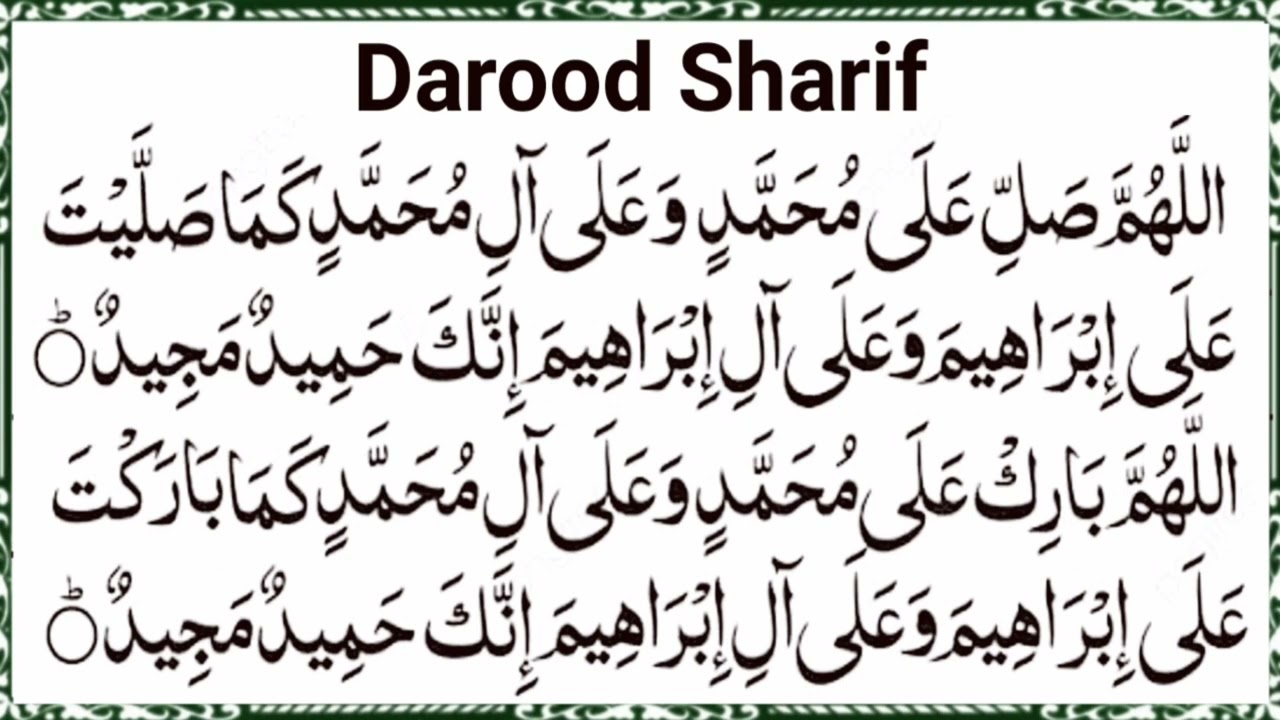 Darood Sharif
اللَّهُمَّ صَلِّ عَلَى مُحَمَّدٍ وَعَلَى آلِ مُحَمَّدٍ كَمَا صَلَّيْتَ
عَلَى إِبْرَاهِيمَ وَعَلَى آلِ إِبْرَاهِيمَ إِنَّكَ حَمِيدٌ مَجِيدٌ ؕ○
اللَّهُمَّ بَارِكْ عَلَى مُحَمَّدٍ وَعَلَى آلِ مُحَمَّدٍ كَمَا بَارَكْتَ
عَلَى إِبْرَاهِيمَ وَعَلَى آلِ إِبْرَاهِيمَ إِنَّكَ حَمِيدٌ مَجِيدٌ ؕ○